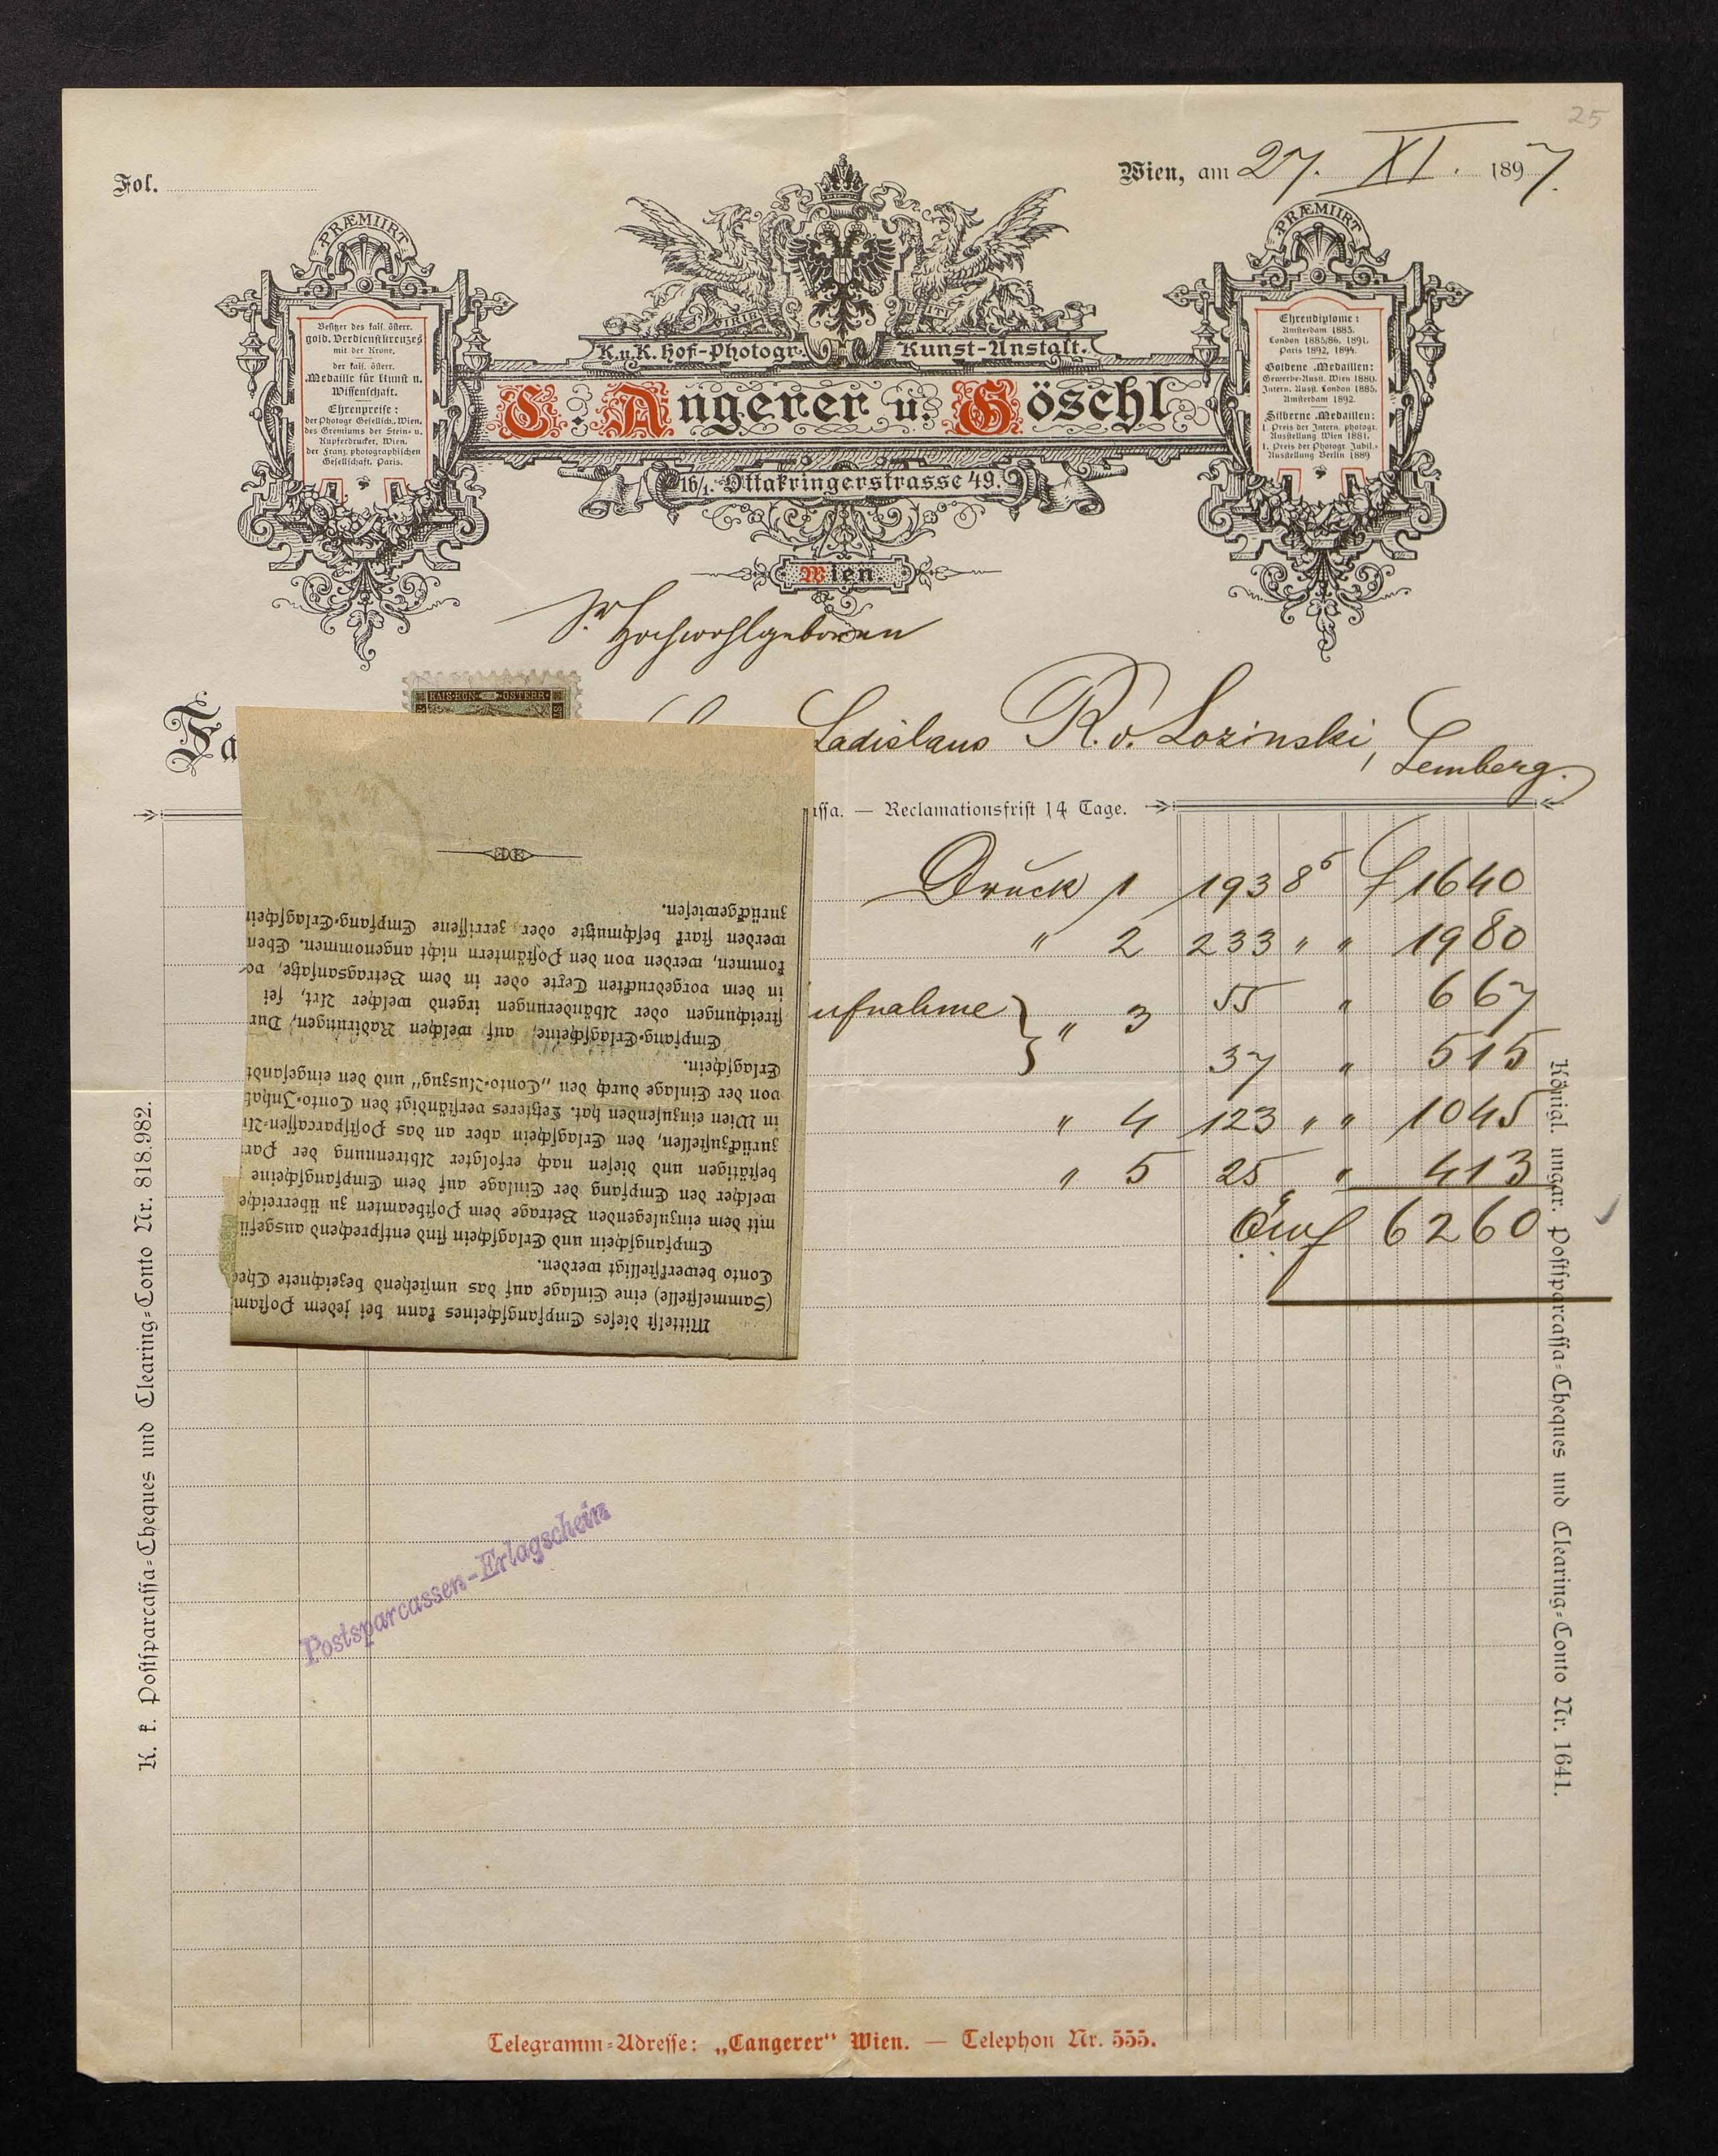 25
Fol.
Wien, am 27. XI. 1897.
PRÆMIIRT
Besitzer des kais. österr.
gold. Verdienstkreuzes
mit der Krone.
der kais. österr.
Medaille für Kunst u.
Wissenschaft.
Ehrenpreise:
der Photogr Gesellsch. Wien.
des Gremiums der Stein- u.
Kupferdrucker, Wien.
der Franz. photographischen
Gesellschaft, Paris.
VIRIBUS UNITIS
K.u.K. Hof-Photogr. Kunst-Anstalt.
C. Angerer u. Göschl
16/1. Ottakringerstrasse 49.
Wien.
PRÆMIIRT
Ehrendiplome:
Amsterdam 1883.
London 1885/86, 1891.
Paris 1892, 1894.
Goldene Medaillen:
Gewerbe-Ausst. Wien 1880.
Intern. Ausst. London 1885.
Amsterdam 1892.
Silberne Medaillen:
I. Preis der Intern. photogr.
Ausstellung Wien 1881.
I. Preis der Photogr Jubil.-
Ausstellung Berlin 1889
Sr Hochwohlgeboren
KAIS·KÖN· ·ÖSTERR·
Fa
Ladislaus R. v. Lozinski, Lemberg.
assa. — Reclamationsfrist 14 Tage.
Druck 1 193 8⁵ f 1640
" 2 233 " " 1980
ufnahme } " 3 55 " 667
37 " 515
" 4 123 " " 1045
" 5 25 " 413
6260
Mittelst dieses Empfangscheines kann bei jedem Postam
(Sammelstelle) eine Einlage auf das umstehend bezeichnete Chec
Conto bewerkstelligt werden.
Empfangschein und Erlagschein sind entsprechend ausgefül
mit dem einzulegenden Betrage dem Postbeamten zu überreiche
welcher den Empfang der Einlage auf dem Empfangscheine
bestätigen und diesen nach erfolgter Abtrennung der Part
zurückzustellen, den Erlagschein aber an das Postsparcassen-A
in Wien einzusenden hat. Letzteres verständigt den Conto-Inhab
von der Einlage durch den „Conto-Auszug" und den eingesandt
Erlagschein.
Empfang-Erlagscheine, auf welchen Radirungen, Dur
streichungen oder Abänderungen irgend welcher Art, sei
in dem vorgedruckten Texte oder in dem Betragsansatze, vo
kommen, werden von den Postämtern nicht angenommen. Eben
werden stark beschmutzte oder zerrissene Empfang-Erlagschein
zurückgewiesen.
K. k. Postsparcassa-Cheques und Clearing-Conto Nr. 818.982.
Königl. ungar. Postsparcassa-Cheques und Clearing-Conto Nr. 1641.
Postsparcassen-Erlagschein
Telegramm-Adresse: „Cangerer" Wien. — Telephon Nr. 555.